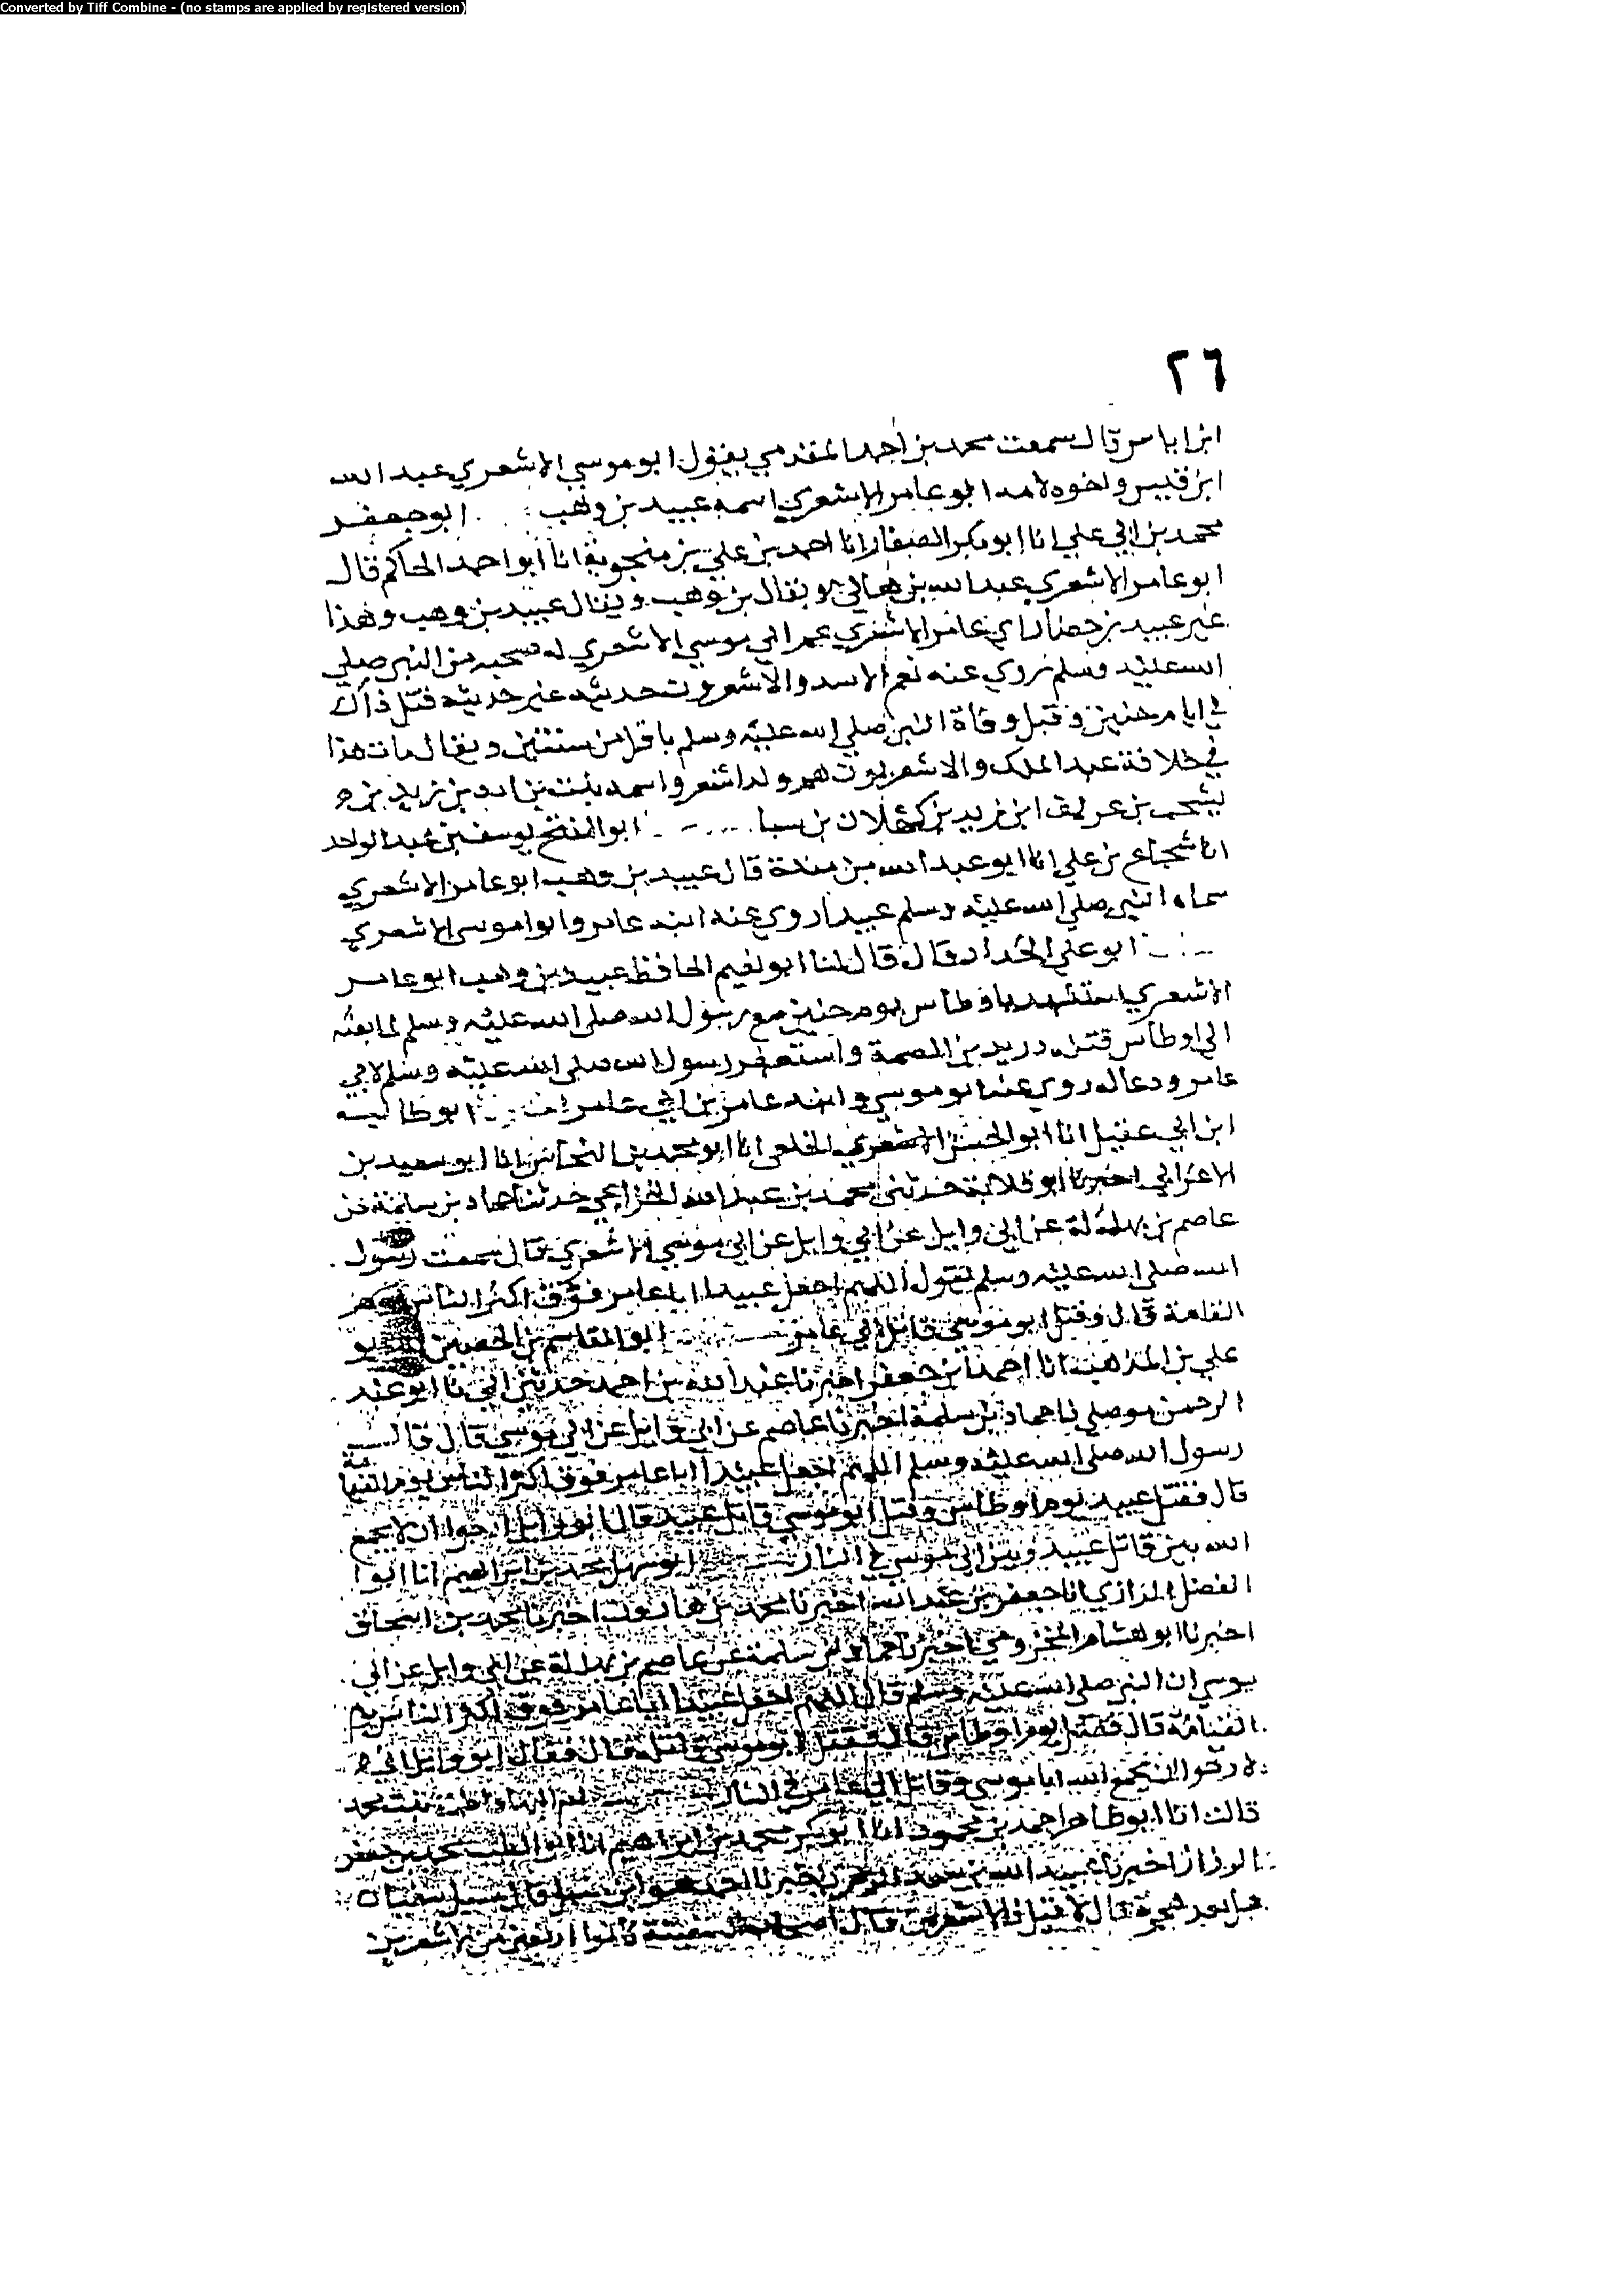 Converted by Tiff Combine - (no stamps are applied by registered version)
٢٦
ابن اياس قال سمعت محمد بن احمد المقدمي يقول ابو موسي الاشعري عبد الله
ابن قيس واخوه لامه ابو عامر الاشعري اسمه عبيد بن وهب ابو جعفر
محمد بن ابي علي انا ابو بكر الصفار انا احمد بن علي بن منجويه انا ابو احمد الحاكم قال
ابو عامر الاشعري عبد الله بن هاني ويقال بن وهب ويقال عبيد بن وهب وهذا
غير عبيد بن حضار ابي عامر الاشعري عم ابي موسي الاشعري له صحبه من النبي صلي
الله عليه وسلم روي عنه نعم الاسد والاشعرون حديثه غير حديثه قتل ذاك
في ايام حنين وقبل وفاة النبي صلي الله عليه وسلم باقل من سنتين ويقال مات هذا
في خلافة عبد الملك والاشعريون هم ولد اشعر واسمه نبت بن ادد بن زيد بن
يشجب بن عريب ابن زيد بن كهلان بن سبا ابو الفتح يوسف بن عبد الواحد
انا شجاع بن علي انا ابو عبد الله بن مندة قال عبيد بن وهب ابو عامر الاشعري
سماه النبي صلي الله عليه وسلم عبيدا روي عنه ابنه عامر وابو موسي الاشعري
ابو علي الحداد قال قال لنا ابو نعيم الحافظ عبيد بن وهب ابو عامر
الاشعري استشهد باوطاس يوم حنين مع رسول الله صلي الله عليه وسلم لما بعثه
الي اوطاس قتله دريد بن الصمة واستغفر رسول الله صلي الله عليه وسلم لابي
عامر ودعا له روي عنه ابو موسي وابنه عامر بن ابي عامر ابو طالب
ابن ابي عقيل انا ابو الحسن الخلعي انا ابو محمد بن النحاس انا ابو سعيد بن
الاعرابي اخبرنا ابو قلابة حدثني محمد بن عبد الله الخزاعي حدثنا حماد بن سلمة عن
عاصم بن بهدلة عن ابي وايل عن ابي وايل عن ابي موسي الاشعري قال سمعت رسول
الله صلي الله عليه وسلم يقول اللهم اجعل عبيدا ابا عامر فوق اكثر الناس يوم
القيامة قال وقتل ابو موسي قاتل ابي عامر ابو القاسم بن الحصين ابو
علي بن المذهب انا احمد بن جعفر اخبرنا عبد الله بن احمد حدثني ابي نا ابو عبد
الرحمن مومل نا حماد بن سلمة اخبرنا عاصم عن ابي وايل عن ابي موسي قال قال
رسول الله صلي الله عليه وسلم اللهم اجعل عبيدا ابا عامر فوق اكثر الناس يوم القيامة
قال فقتل عبيد يوم اوطاس وقتل ابو موسي قاتل عبيد قال ابو وايل ارجوا ان لا يجمع
الله بين قاتل عبيد وبين ابي موسي في النار ابو سهل محمد بن ابراهيم انا ابو
الفضل الرازي انا جعفر بن عبد الله اخبرنا محمد بن هارون اخبرنا محمد بن اسحاق
اخبرنا ابو هشام المخزومي اخبرنا حماد بن سلمة عن عاصم بن بهدلة عن ابي وايل عن ابي
موسي ان النبي صلي الله عليه وسلم قال اللهم اجعل عبيدا ابا عامر فوق اكثر الناس يوم
القيامة قال فقتل يوم اوطاس قال فقتل ابو موسي قاتله قال فقال ابو وايل اني
لارجوا ان يجمع الله ابا موسي وقاتل ابي عامر في النار ام البهاء فاطمة بنت محمد
قالت انا ابو طاهر احمد بن محمود انا ابو بكر محمد بن ابراهيم انا ابو الطيب محمد بن جعفر
الزراز اخبرنا عبيد الله بن سعد الزهري اخبرنا احمد هو ابن حنبل قال سفيان
قال الاشعريين قال اصحاب السفينة كانوا اربعين من الاشعريين